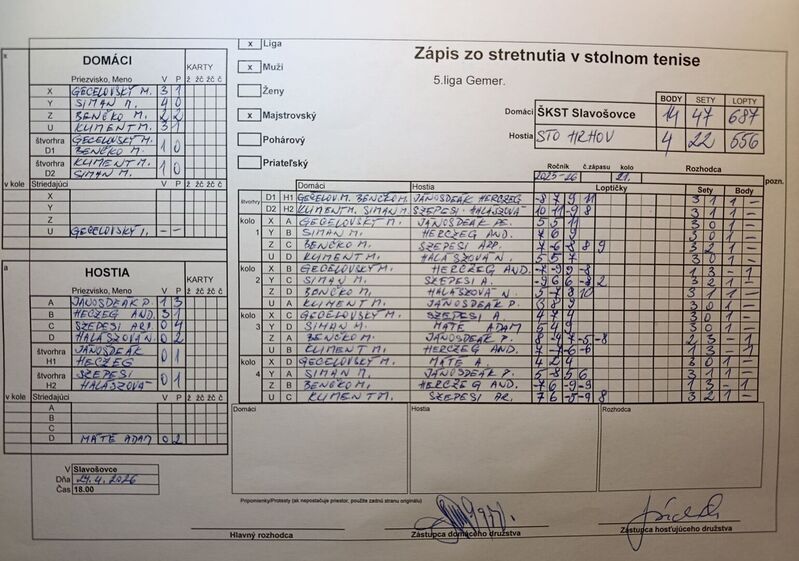 x Liga
x Muži
Ženy
x Majstrovský
Pohárový
Priateľský
Zápis zo stretnutia v stolnom tenise
5.liga Gemer.
BODY SETY LOPTY
Domáci ŠKST Slavošovce 14 47 687
Hostia STO HRHOV 4 22 556
Ročník č.zápasu kolo Rozhodca
2025-26 21.
DOMÁCI
Priezvisko, Meno V P KARTY ž žč žč č
X GECELOVSKÝ M. 3 1
Y SIMAN M. 4 0
Z BENČKO M. 2 2
U KLIMENT M. 3 1
štvorhra D1 GECELOVSKÝ M. BENČKO M. 1 0
štvorhra D2 KLIMENT M. SIMAN M. 1 0
v kole Striedajúci
X
Y
Z
U GECELOVSKÝ I. - -
HOSTIA
Priezvisko, Meno V P KARTY ž žč žč č
A JÁNOSDEÁK P. 1 3
B HECZEG AND. 3 1
C SZEPESI ARP. 0 4
D HALÁSZOVÁ N. 0 2
štvorhra H1 JÁNOSDEÁK HECZEG 0 1
štvorhra H2 SZEPESI HALÁSZOVÁ 0 1
v kole Striedajúci
A
B
C
D MÁTÉ ADAM 0 2
V Slavošovce
Dňa 24.4.2026
Čas 18.00
Domáci Hostia Loptičky Sety Body pozn.
štvorhry D1 H1 GECELOV M. BENČKO M. JÁNOSDEÁK HERCZEG -8 7 9 11 3 1 1 -
D2 H2 KLIMENT M. SIMAN M. SZEPESI HALÁSZOVÁ 10 11 -9 8 3 1 1 -
kolo 1 X A GECELOVSKÝ M. JÁNOSDEÁK PE. 5 5 11 3 0 1 -
Y B SIMAN M. HERCZEG AND. 7 6 9 3 0 1 -
Z C BENČKO M. SZEPESI ARP. -7 6 -8 8 9 3 2 1 -
U D KLIMENT M. HALÁSZOVÁ N. 5 5 7 3 0 1 -
kolo 2 X B GECELOVSKÝ M. HERCZEG AND. -7 -9 9 -8 1 3 - 1
Y C SIMAN M. SZEPESI A. -9 6 6 -8 2 3 2 1 -
Z D BENČKO M. HALÁSZOVÁ N. 5 -7 8 10 3 1 1 -
U A KLIMENT M. JÁNOSDEÁK P. 3 8 9 3 0 1 -
kolo 3 X C GECELOVSKÝ M. SZEPESI A. 4 7 4 3 0 1 -
Y D SIMAN M. MÁTÉ ADAM 5 4 9 3 0 1 -
Z A BENČKO M. JÁNOSDEÁK P. 8 -4 7 -5 -8 2 3 - 1
U B KLIMENT M. HERCZEG AND. 7 -7 -6 -6 1 3 - 1
kolo 4 X D GECELOVSKÝ M. MÁTÉ A. 4 2 4 3 0 1 -
Y A SIMAN M. JÁNOSDEÁK P. 5 -8 5 6 3 1 1 -
Z B BENČKO M. HERCZEG AND. -7 6 -9 -9 1 3 - 1
U C KLIMENT M. SZEPESI AR. 7 6 -5 -9 8 3 2 1 -
Domáci Hostia Rozhodca
Pripomienky/Protesty (ak nepostačuje priestor, použite zadnú stranu originálu)
Hlavný rozhodca Zástupca domáceho družstva Zástupca hosťujúceho družstva